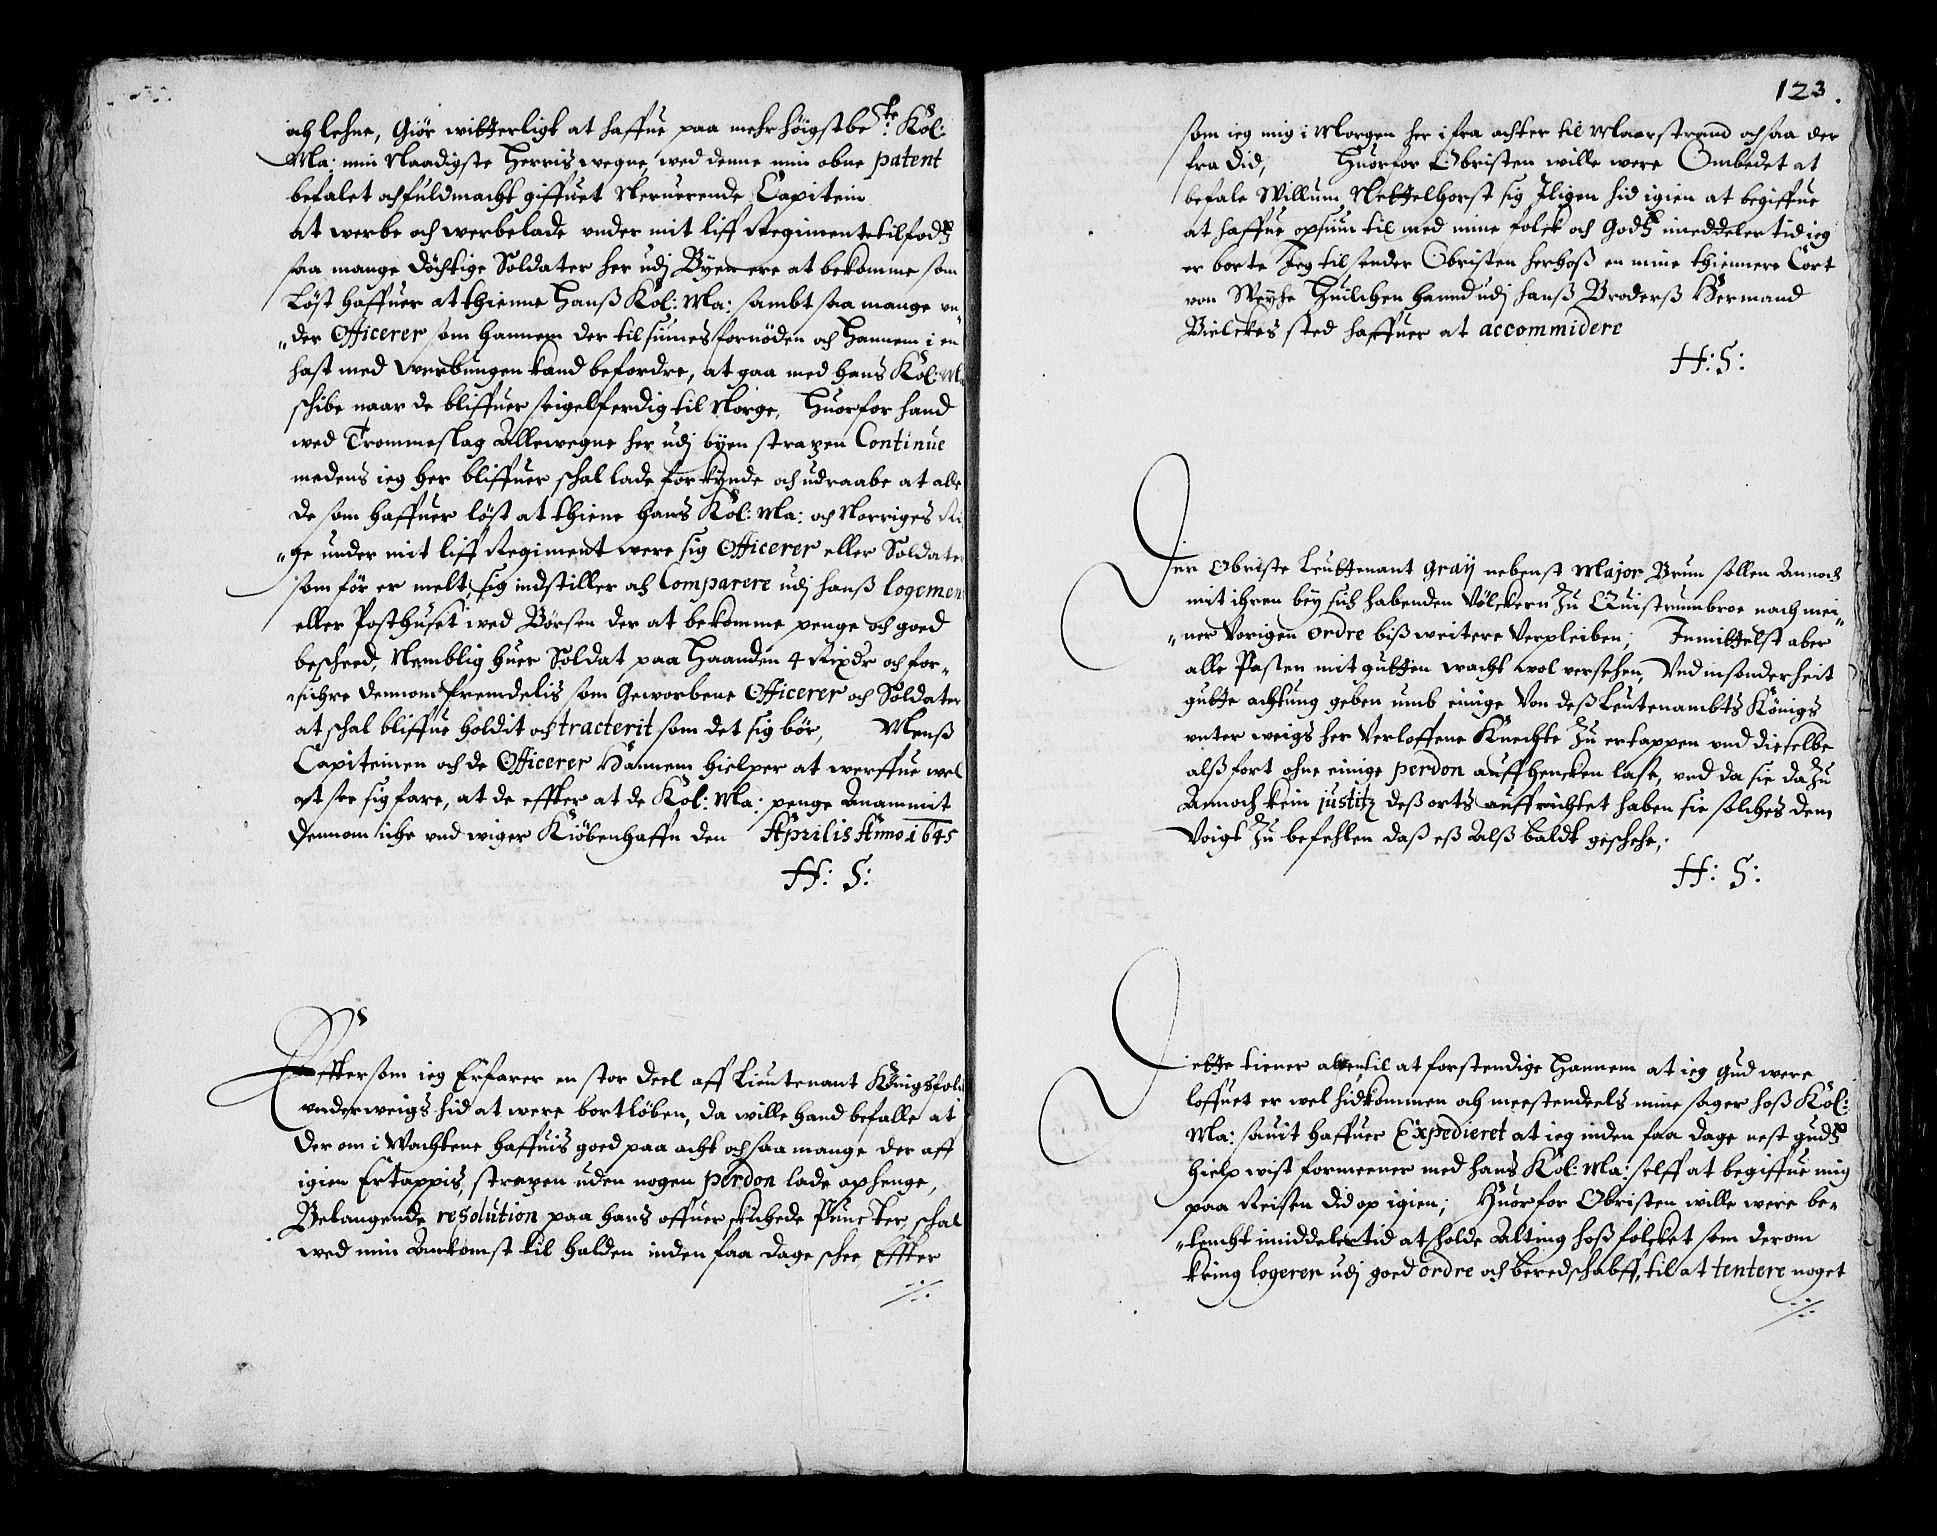 och lehne, Giör witterligt at haffue paa mehr höigstbe:te Kol:
Ma: min Naadigste Herris wegne, wed denne min obne patent
befalet och fuldmacht giffuet Neruerende Capitein
at werbe och werbe lade under mit liff Regimente til fodß
saa mange döchtige Soldater her udj Byen ere at bekomme som
Löst haffuer at thienne Hanß Kol: Ma: sambt saa mange un„
„der Officerer som hannem der til siunes fornöden och Hannem i en
hast med werbungen kand befordre, at gaa med hans Kol: Ma
schibe naar de bliffuer seigelferdig til Norge, Huorfor hand
wed Trommeslag Allewegne her udj byen straxen Continue
medens ieg her bliffuer schal lade forkynde och udraabe at alle
de som haffuer löst at thiene hans Kol: Ma: och Norriges Ri
„ge under mit liff Regiment were sig Officerer eller Soldater
som för er melt, sig indstiller och Comparere udj hanß logement
eller Posthuset wed Börsen der at bekomme penge och goed
bescheed, Nemblig huer Soldat paa Haanden 4 Rixdr och for„
„sichre dennom fremdelis som Geworbene Officerer och Soldater
at schal bliffue holdit och tracterit som det sig bör, Menß
Capiteinen och de Officerer Hannem hielper at werffue wel
at see sig fare, at de effter at de Kol: Ma: penge Anammit
dennom icke und wiger Kiöbenhaffn den Aprilis Anno 1645
H: S:
Efftersom ieg Erfarer en stor deel aff Lieutenant Königs folck
underweigs hid at were bortlöben, da wille hand befalle at
der om i Wachtene haffuis goed paa acht och saa mange der aff
igien Ertappis, straxen uden nogen perdon lade ophenge,
Belangende resolution paa hans offuer skickede Puncter, schal
wed min Ankomst til Halden inden faa dage schee Effter
123.
som ieg mig i Morgen her ifra achter til Maarstrand och saa der
fra did, Huorfor Obristen wille were Ombedet at
befale Willum Nettelhorst sig Iligen hid igien at begiffue
at haffue opsiun til med mine folck och Godß imeddeler tid ieg
er borte Jeg til sender Obristen herhoß en mine thiennere Cort
von Weyhe Huilchen hannd udj hanß Broderß Hermand
Bielckes sted haffuer at accommidere
H: S:
Der Obriste Leuttenant Graij nebenst Major Brun sollen Annoch
mit ihren bey sich habenden Völckern Zu Quistrumbroe nach mei„
„ner Vorigen ordre biß weitere Verpleiben; Inmittelst aber
alle Pasten mit gutten wacht wol versehen, Und insonderheit
gutte achtung geben umb einige Von deß Leutenambts Königs
unter weigs her Verloffene Knechte Zu ertappen und dieselbe
alß fort ohne einige perdon auffhencken lase, und da sie dazu
Annoch kein justitz deß orts auffrichtet haben sie solches dem
Voigt Zu befehlen daß eß Alß baldt geschehe,
H: S:
Dette tiener alten til at forstendige Hannem at ieg Gud were
loffuet er wel hidkommen och meestendeels mine sager hoß Kol:
Ma: sauit haffuer Expedieret at ieg inden faa dage nest gudß
hielp wist formeener med hans Kol: Ma: selff at begiffue mig
paa Reisen did op igien; Huorfor Obristen wille were be„
„tencht imiddeler tid at holde Alting hoß folcket som der om
kring logerer udj goed ordre och beredschabff, til at tentere noget